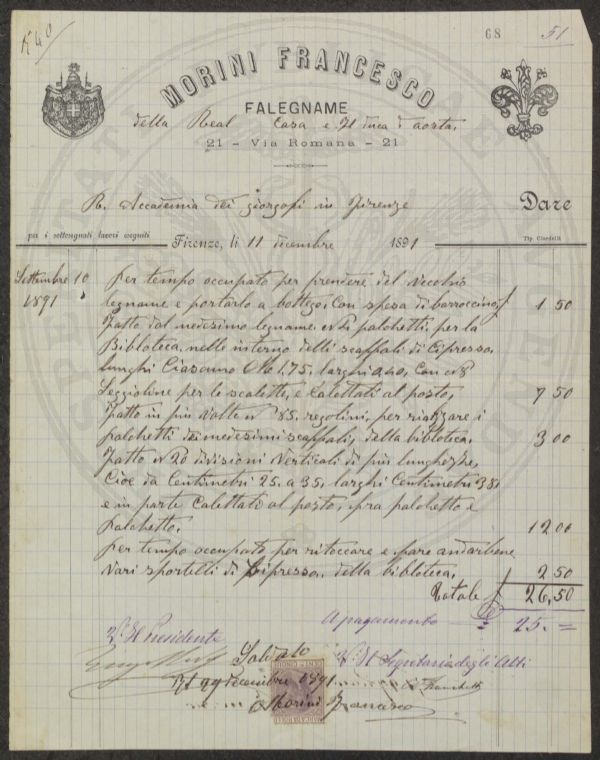 K 40
68
51
MORINI FRANCESCO
FALEGNAME
della Real Casa e Il duca d aosta.
21 - Via Romana - 21
R. Accademia dei giorgofi in Firenze
Dare
per i sottosegnati lavori eseguiti
Firenze, li 11 decembre 1891
Tip. Ciardelli
Settembre 10 1891
Per tempo occupato per prendere del vecchio
legname e portarlo a bottega, Con spesa di barroccino 1 50
Fatto dal medesimo legname, palchetti, per la
Bibloteca, nelle interno delli scaffali di Cipresso,
lunghi Ciascuno 1,75, larghi 0,40, Con n 8
Seggioline per le scalette, e Calettati al posto, 7 50
Fatto in più volte n 85, regolini, per rialzare i
palchetti dei medesimi scaffali, della bibloteca, 3 00
Fatto n 20 divisioni Verticali di più lunghezze,
Cioè da Centimetri 25 a 35, larghi Centimetri 38
e in parte Calettati al posto, fra palchetto e
palchetto, 12 00
Per tempo occupato per ritoccare e fare andar bene
Vari sportelli di Cipresso, della bibloteca, 2 50
Totale 26,50
A pagamento 25. =
V. Il Presidente
Saldato
V. Il Segretario degli Atti
decembre 1891
Morini Francesco